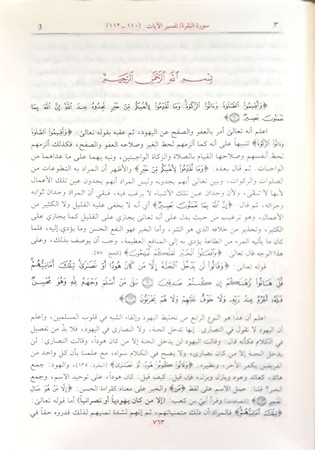 ٣ سورة البقرة/ تفسير الآيات (١١٠ ـ ١١٢) 3
بِسْمِ اللَّهِ الرَّحْمَنِ الرَّحِيمِ
﴿وَأَقِيمُوا الصَّلَوٰةَ وَءَاتُوا الزَّكَوٰةَ وَمَا تُقَدِّمُوا لِأَنفُسِكُم مِّنْ خَيْرٍ تَجِدُوهُ عِندَ اللَّهِ إِنَّ اللَّهَ بِمَا
تَعْمَلُونَ بَصِيرٌ﴾
اعلم أنه تعالى أمر بالعفو والصفح عن اليهود، ثم عقبه بقوله تعالى: ﴿وَأَقِيمُوا الصَّلَوٰةَ
وَءَاتُوا الزَّكَوٰةَ﴾ تنبيهاً على أنه كما ألزمهم لحظ الغير وصلاحه العفو والصفح، فكذلك ألزمهم
لحظ أنفسهم وصلاحها القيام بالصلاة والزكاة الواجبتين، ونبه بهما على ما عداهما من
الواجبات. ثم قال بعده: ﴿وَمَا تُقَدِّمُوا لِأَنفُسِكُم مِّنْ خَيْرٍ﴾ والأظهر أن المراد به التطوعات من
الصلوات والزكوات، وبين تعالى أنهم يجدونه وليس المراد أنهم يجدون عين تلك الأعمال
لأنها لا تبقى، ولأن وجدان عين تلك الأشياء لا يرغب فيه، فبقي أن المراد وجدان ثوابه
وجزائه، ثم قال: ﴿إِنَّ اللَّهَ بِمَا تَعْمَلُونَ بَصِيرٌ﴾ أي أنه لا يخفى عليه القليل ولا الكثير من
الأعمال، وهو ترغيب من حيث يدل على أنه تعالى يجازي على القليل كما يجازي على
الكثير، وتحذير من خلافه الذي هو الشر، وأما الخير فهو النفع الحسن وما يؤدي إليه، فلما
كان ما يأتيه المرء من الطاعة يؤدي به إلى المنافع العظيمة، وجب أن يوصف بذلك، وعلى
هذا الوجه قال تعالى: ﴿وَافْعَلُوا الْخَيْرَ لَعَلَّكُمْ تُفْلِحُونَ﴾ [الحج: ٧٧].
قوله تعالى: ﴿وَقَالُوا لَن يَدْخُلَ الْجَنَّةَ إِلَّا مَن كَانَ هُودًا أَوْ نَصَٰرَىٰ تِلْكَ أَمَانِيُّهُمْ
قُلْ هَاتُوا بُرْهَٰنَكُمْ إِن كُنتُمْ صَٰدِقِينَ بَلَىٰ مَنْ أَسْلَمَ وَجْهَهُ لِلَّهِ وَهُوَ مُحْسِنٌ
فَلَهُ أَجْرُهُ عِندَ رَبِّهِ وَلَا خَوْفٌ عَلَيْهِمْ وَلَا هُمْ يَحْزَنُونَ﴾
اعلم أن هذا هو النوع الرابع من تخليط اليهود وإلقاء الشبه في قلوب المسلمين، واعلم
أن اليهود لا تقول في النصارى: إنها تدخل الجنة، ولا النصارى في اليهود، فلا بد من تفصيل
في الكلام فكأنه قال: وقالت اليهود لن يدخل الجنة إلا من كان هوداً، وقالت النصارى: لن
يدخل الجنة إلا من كان نصارى، ولا يصح في الكلام سواه، مع علمنا بأن كل واحد من
الفريقين يكفر الآخر، ونظيره: ﴿وَقَالُوا كُونُوا هُودًا أَوْ نَصَٰرَىٰ﴾ [البقرة: ١٣٥] والهود: جمع
هائد، كعائذ وعوذ وبازل وبزل، فإن قيل: كيف قيل: كان هوداً، على توحيد الاسم، وجمع
الخبر؟ قلنا: حمل الاسم على لفظ ﴿مَن﴾ والخبر على معناه كقراءة الحسن: ﴿إِلَّا مَنْ هُوَ صَالِ
الْجَحِيمِ﴾ [الصافات: ١٦٣] وقرأ أبي بن كعب: (إلا من كان يهودياً أو نصرانياً) أما قوله تعالى:
﴿تِلْكَ أَمَانِيُّهُمْ﴾ فالمراد أن ذلك متمنياتهم، ثم إنهم لشدة تمنيهم لذلك قدروه حقاً في
٧٦٣